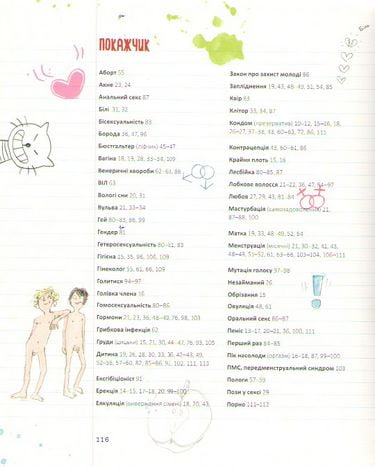 ПОКАЖЧИК
Аборт 55
Акне 23, 24
Анальний секс 87
Білі 31, 32
Бісексуальність 83
Борода 36, 47, 96
Бюстгальтер (ліфчик) 45–47
Вагіна 18, 19, 28, 33–34, 109
Венеричні хвороби 62–63, 86
ВІЛ 63
Вологі сни 20, 31
Вульва 21, 33–34
Гей 80–83, 86, 99
Гендер 81
Гетеросексуальність 80–81, 83
Гігієна 15, 35, 96, 106, 109
Гінеколог 55, 61, 66, 109
Голитися 94–97
Голівка члена 16
Гомосексуальність 80–86
Гормони 21, 23, 36, 48–49, 76, 98, 103
Грибкова інфекція 62
Груди (цицьки) 15, 21, 30, 44–47, 76, 93, 105
Дитина 19, 26, 28, 30, 33, 36, 42–43, 49,
52–58, 57–60, 82, 85–86, 91, 102, 111, 113
Ексгібіціоніст 91
Ерекція 14–15, 17–18, 20, 99–100
Еякуляція (виверження сімені) 18, 20, 43,
Закон про захист молоді 86
Запліднення 19, 43, 48–49, 51, 54, 85
Квір 83
Клітор 33, 34, 87
Кондом (презерватив) 10–12, 15–16, 18,
26–27, 37–38, 43, 60–63, 72, 86, 111
Контрацепція 43, 60–61, 86
Крайня плоть 15, 16
Лесбійка 80–85, 87
Лобкове волосся 21–22, 36, 47, 94–97
Любов 27, 29, 43, 81, 84
Мастурбація (самозадоволення) 21,
87–88, 100
Матка 19, 33, 48–49, 52, 64
Менструація (місячні) 21, 30–32, 61, 43,
48–49, 51–52, 61, 63–66, 103–104, 106–111
Мутація голосу 97–98
Незайманий 26
Обрізання 15
Овуляція 48, 61
Оральний секс 86–87
Пеніс 13–17, 20–21, 36, 100, 111
Перший раз 84–85
Пік насолоди (оргазм) 16–18, 87, 99–100
ПМС, передменструальний синдром 103
Пологи 57–59
Пози у сексі 29
Порно 111–112
116